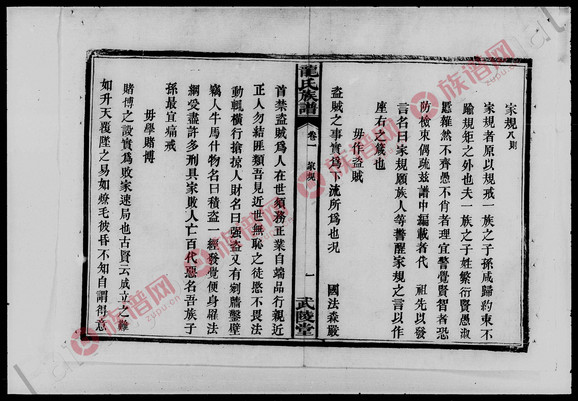 家規八則
家規者原以規戒一族之子孫咸歸約束不
踰規矩之外也夫一族之子姓繁衍賢愚淑
慝雜然不齊愚不肖者理宜警覺賢智者恐
防檢束偶疏茲譜中編載者代 祖先以發
言名曰家規願族人等警醒家規之言以作
座右之箴也
毋作盜賊
盜賊之事實為下流所為也况 國法森嚴
龍氏族譜
卷一 家規
一
武陵堂
首禁盜賊為人在世須務正業自端品行親近
正人勿結匪類吾見近世無恥之徒慾不畏法
動輒橫行搶掠人財名曰強盜又有剜牆鑿壁
竊人牛馬什物名曰積盜一經發覺便身罹法
網受盡許多刑具家敗人亡百代惡名吾族子
孫最宜痛戒
毋學賭博
賭博之設實為敗家速局也古賢云成立之難
如升天覆墜之易如燎毛彼昏不知自謂得意
族谱网
zupu.cn
族谱网
zupu.cn
族谱网
zupu.cn